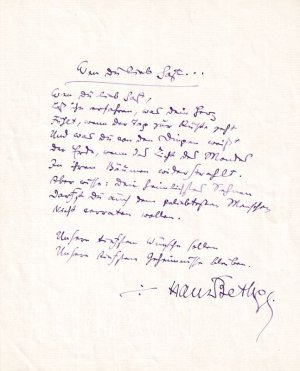 Wen du lieb hast...
Wen du lieb hast,
Laß ihn erfahren, was dein Herz
Fühlt, wenn der Tag zur Rüste geht
Und was du von den Dingen weißt
Der Erde, wenn das Licht des Mondes
In ihren Bäumen widerstrahlt.
Aber wisse: dein heimlichstes Sehnen
Darfst du auch dem geliebtesten Menschen
Nicht verraten wollen.
Unsere tiefsten Wünsche sollen
Unsere tiefsten Geheimnisse bleiben.
Hans Bethge.